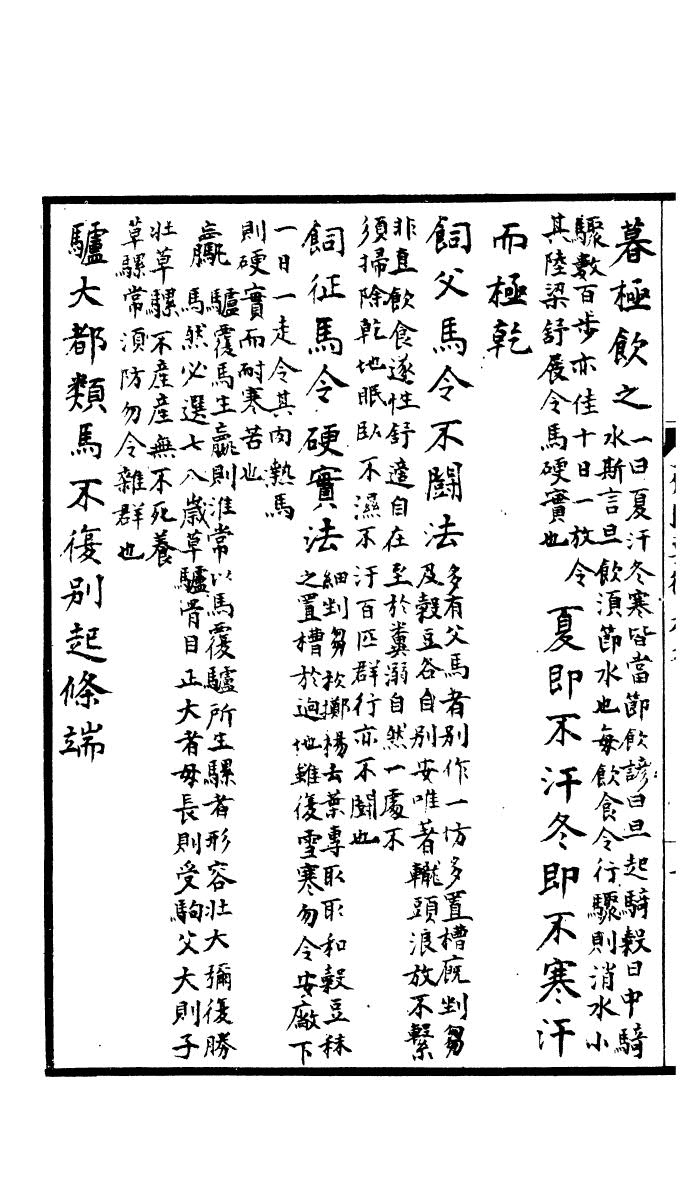 暮極飲之一曰夏汗冬寒皆當節飲諺曰旦起騎穀日中騎
水斯言旦飲須節水也每飲食令行驟則消水小
驟數百步亦佳十日一放令
其陸梁舒展令馬硬實也
夏即不汗冬即不寒汗
而極乾
飼父馬令不鬪法多有父馬者別作一坊多置槽廐剉芻
及穀豆各自別安唯著䪊頭浪放不繫
非直飲食遂性舒適自在至於糞溺自然一處不
須掃除乾地眠臥不濕不汙百匹群行亦不鬪也
飼征馬令硬實法細剉芻杴擲揚去葉專取取和穀豆秣
之置槽於迥地雖復雪寒勿令安廠下
一日一走令其肉熱馬
則硬實而耐寒苦也
驘驢覆馬生驘則准常以馬覆驢所生騾者形容壯大彌復勝
馬然必選七八歲草驢骨目正大者母長則受駒父大則子
壯草騾不產產無不死養
草騾常須防勿令雜群也
驢大都類馬不復別起條端